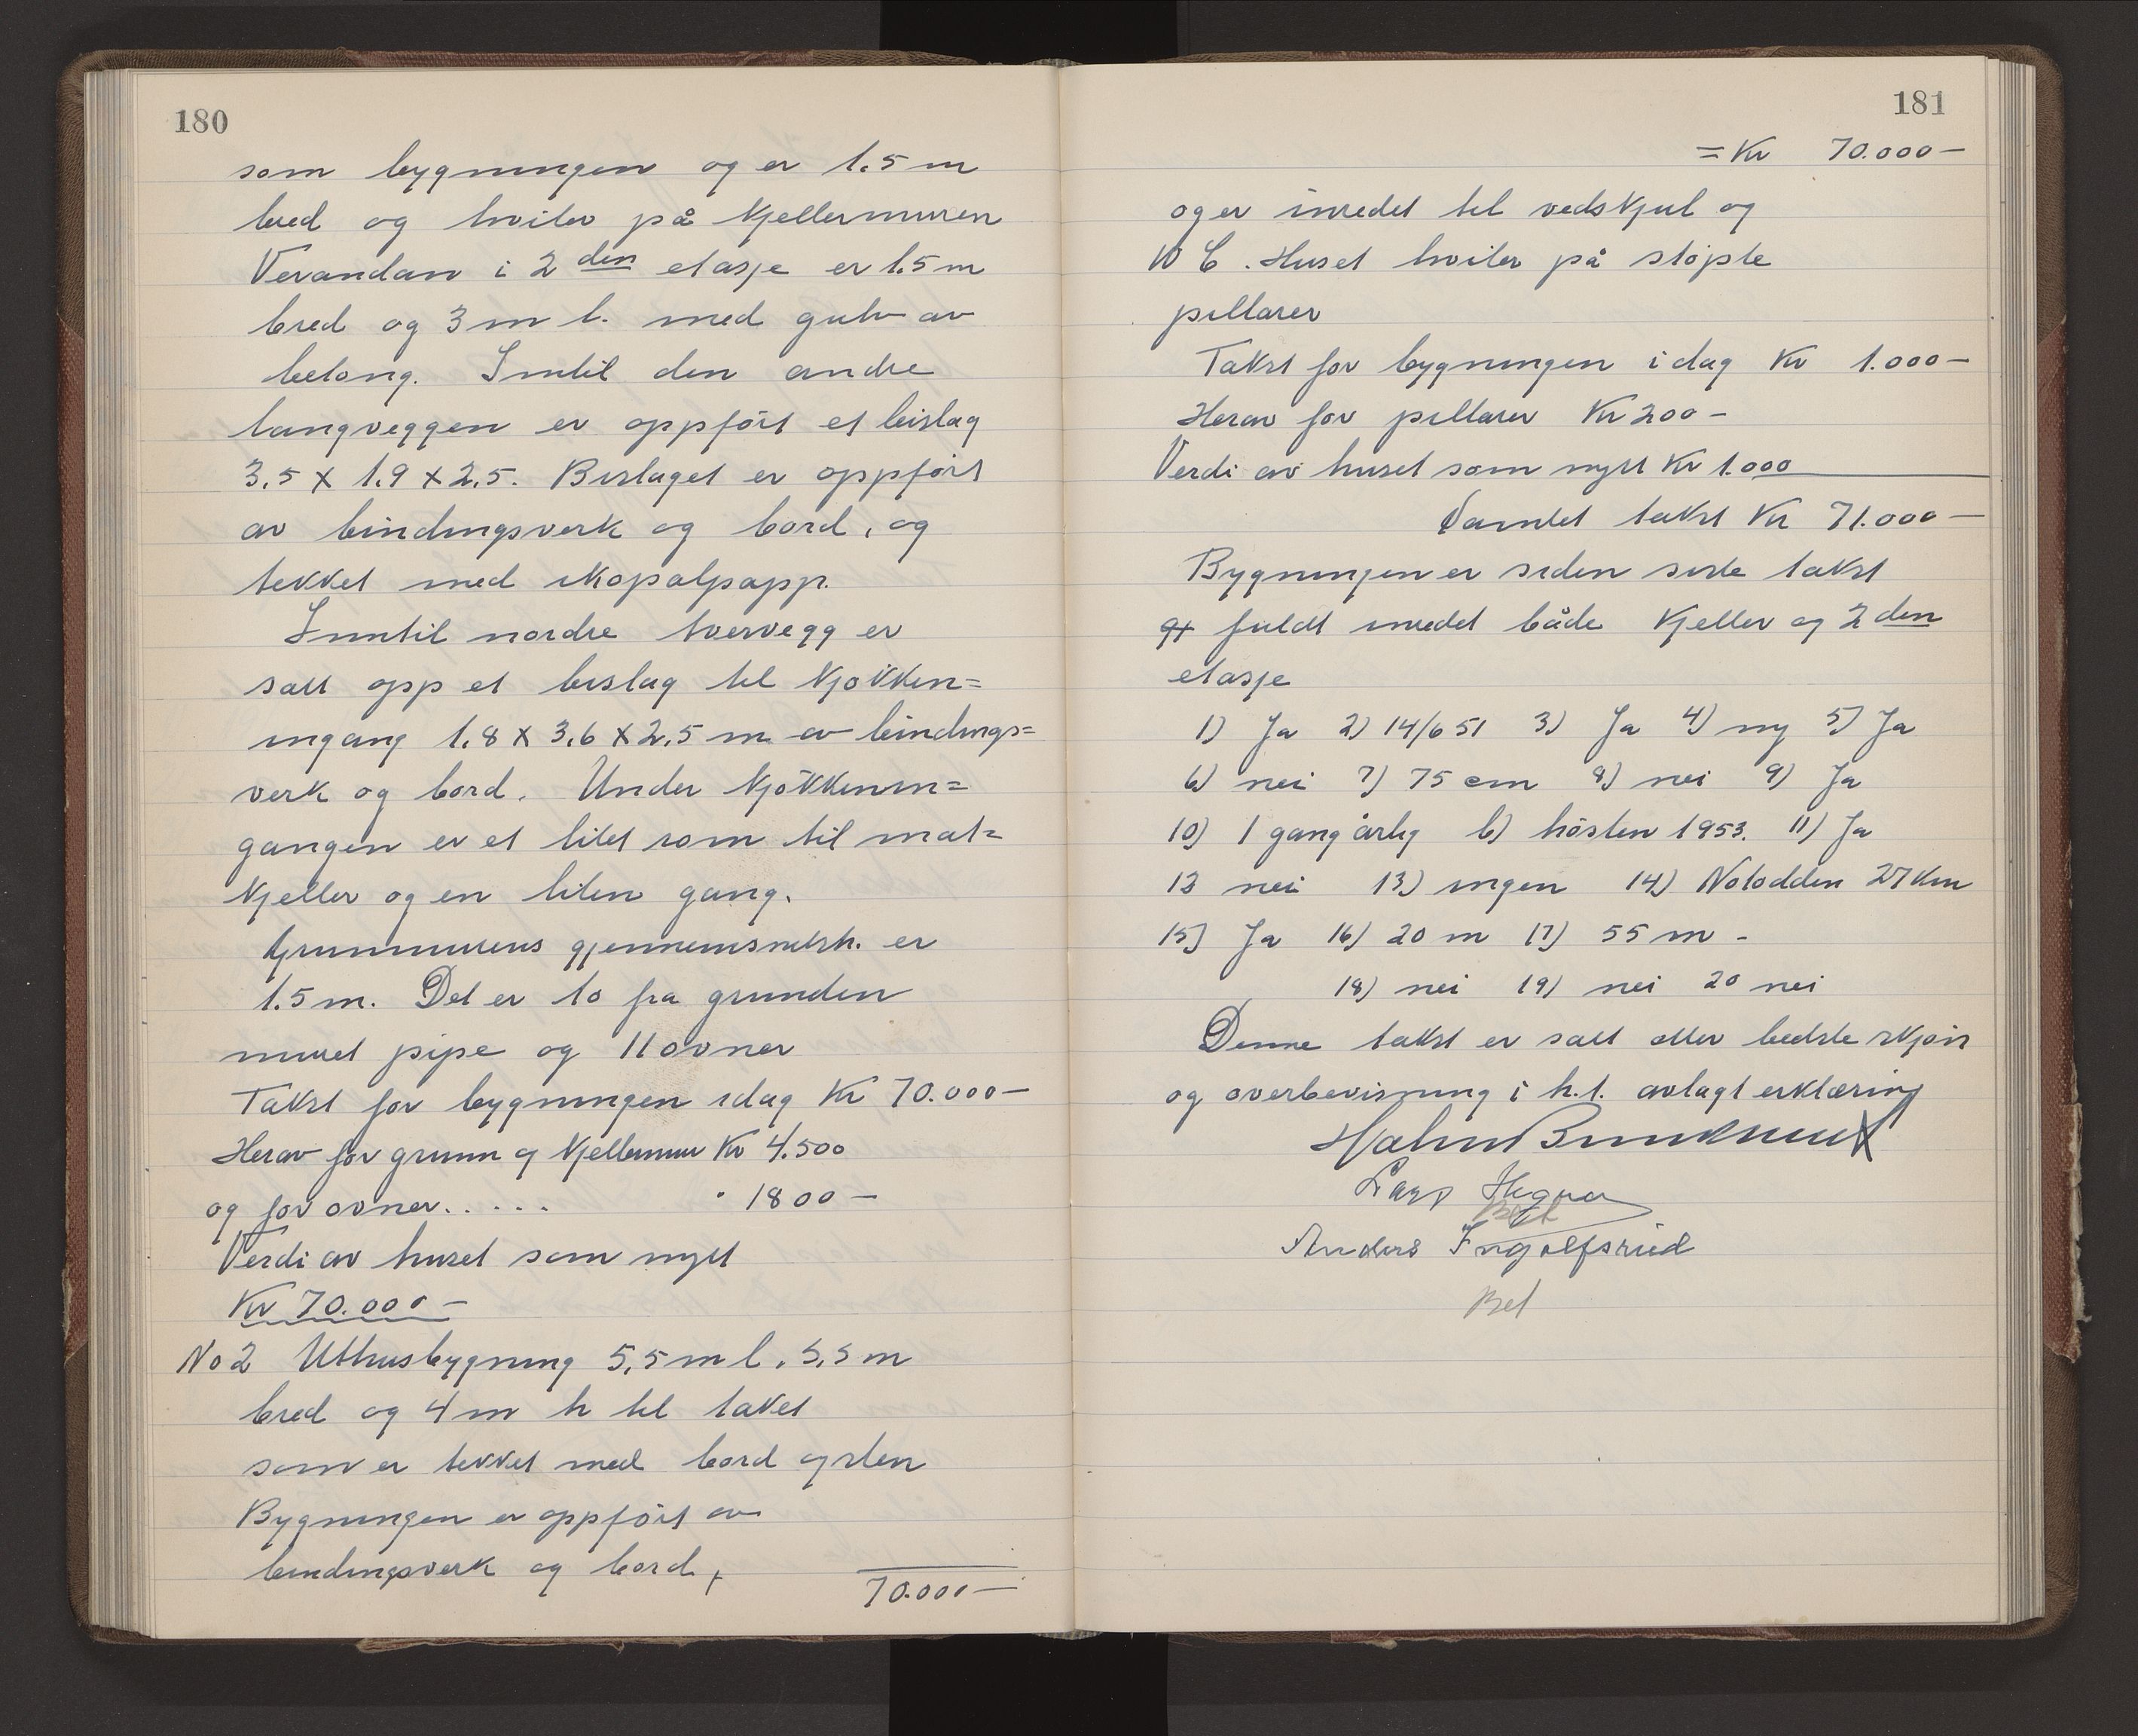 180
som bygningen og er 1.5 m
bred og hviler på kjellermuren
Verandan i 2 den etasje er 1.5 m
bred og 3 m l. med gulv av
betong. Inntil den andre
langveggen er oppført et bislag
3.5 x 1.9 x 2.5. Bislaget er oppført
av bindingsverk og bord, og
tekket med ikopalpapp.
Inntil nordre tvervegg er
satt opp et bislag til kjøkken=
ingang 1.8 x 3.6 x 2.5 m av bindings=
verk og bord. Under kjøkkenin=
gangen er et litet rom til mat=
kjeller og en liten gang.
Grunnmurens gjennemsnitsh. er
1.5 m. Det er to fra grunden
muret pipe og 11 ovner
Takst for bygningen idag Kr 70.000-
Herav for grunn og kjellermur Kr 4.500
og for ovner..... " 1800 -
Verdi av huset som nytt
Kr 70.000 -
No 2 Uthusbygning 5,5 m l. 5,5 m
bred og 4 m h til taket
som er tekket med bord og sten
Bygningen er oppført av
bindingsverk og bord,
70.000 -
181
= Kr 70.000 -
og er inredet til vedskjul og
W C. Huset hviler på støpte
pillarer
Takst for bygningen i dag Kr 1.000 -
Herav for pillarer Kr 200 -
Verdi av huset som nytt Kr 1.000
Samlet takst Kr 71.000 -
Bygningen er siden siste takst
fuldt inredet både kjeller og 2 den
etasje
1) Ja 2) 14/6 51 3) Ja 4) ny 5) Ja
6) nei 7) 75 cm 8) nei 9) Ja
10) 1 gang årlig b) høsten 1953. 11) Ja
12 nei 13) ingen 14) Notodden 27 Km
15) Ja 16) 20 m 17) 55 m -
18) nei 19) nei 20 nei
Denne takst er satt etter bedste skjøn
og overbevisning i h.t. avlagt erklæring
Lars
Anders Ingolfsrud
Bet